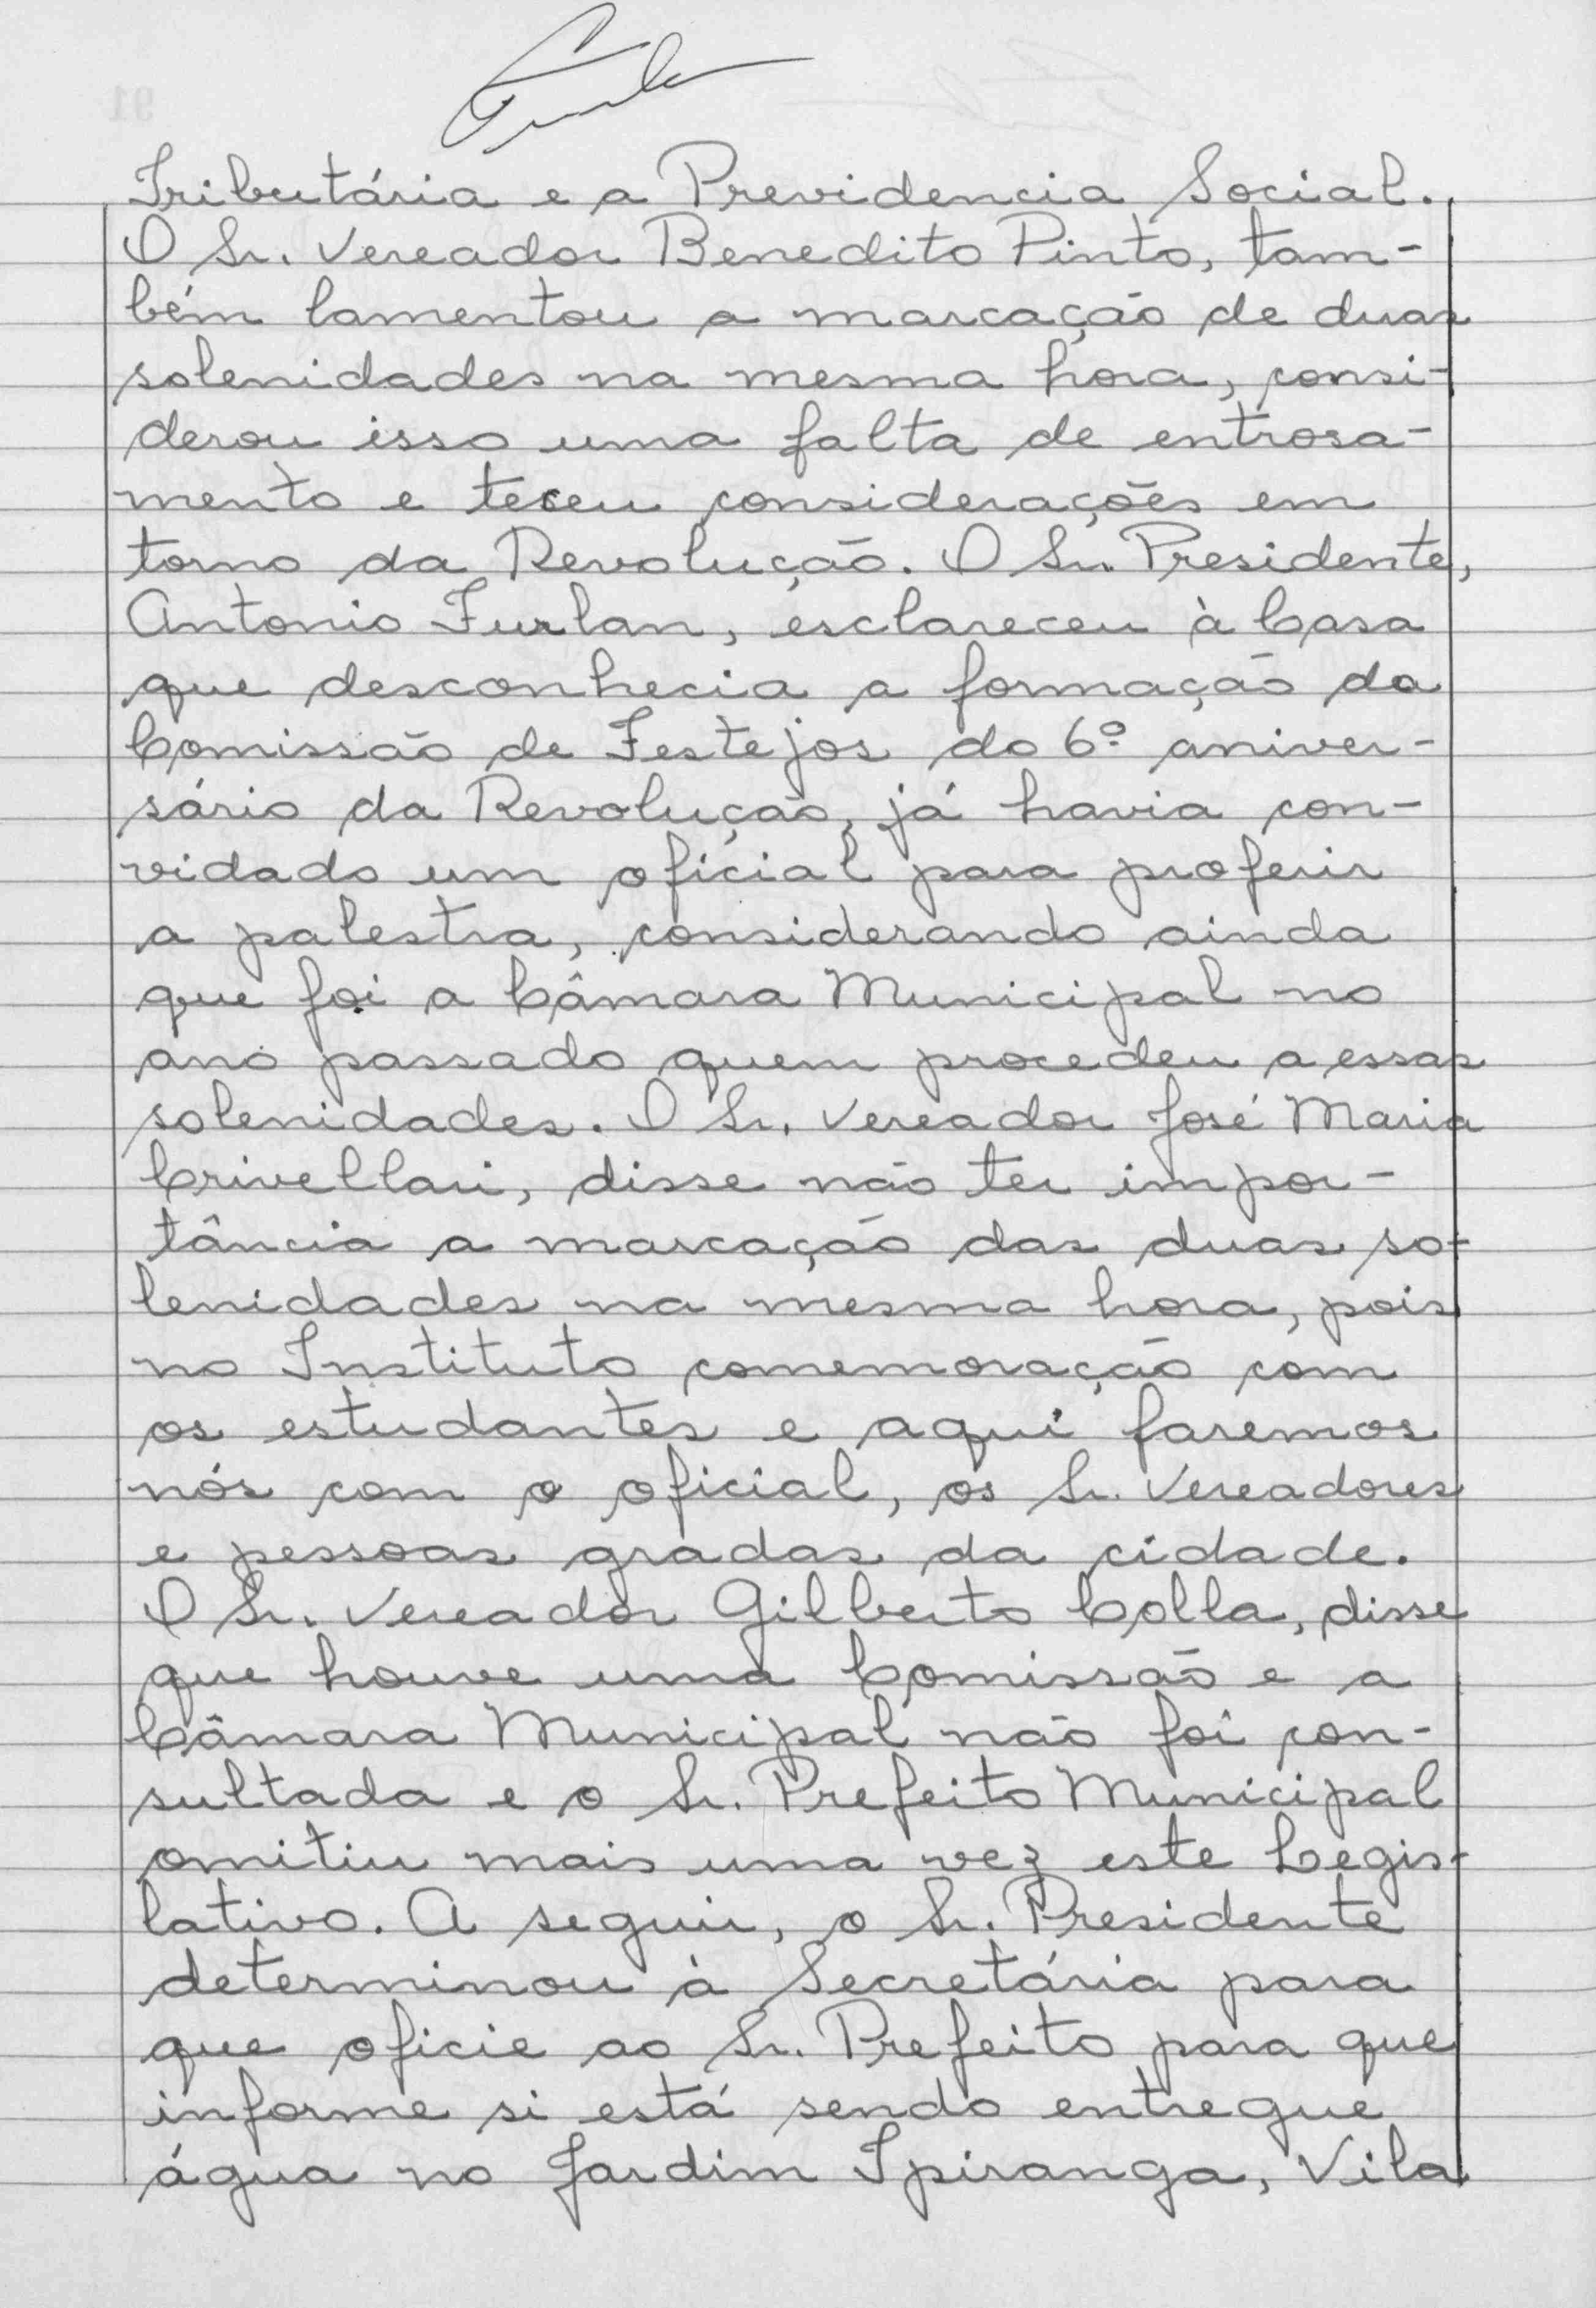 Tributária e a Previdencia Social.
O Sr. Vereador Benedito Pinto, tam-
bém lamentou a marcação de duas
solenidades na mesma hora, consi-
derou isso uma falta de entrosa-
mento e teceu considerações em
torno da Revolução. O Sr. Presidente,
Antonio Furlan, esclareceu à Casa
que desconhecia a formação da
Comissão de Festejos do 6º aniver-
sário da Revolução, já havia con-
vidado um oficial para proferir
a palestra, considerando ainda
que foi a Câmara Municipal no
ano passado quem procedeu a essas
solenidades. O Sr. Vereador José Maria
Crivellari, disse não ter impor-
tância a marcação das duas so-
lenidades na mesma hora, pois
no Instituto comemoração com
os estudantes e aqui faremos
nós com o oficial, os Sr. Vereadores
e pessoas gradas da cidade.
O Sr. Vereador Gilberto Colla, disse
que houve uma Comissão e a
Câmara Municipal não foi con-
sultada e o Sr. Prefeito Municipal
omitiu mais uma vez este Legis-
lativo. A seguir, o Sr. Presidente
determinou à Secretária para
que oficie ao Sr. Prefeito para que
informe si está sendo entregue
água no Jardim Ipiranga, Vila